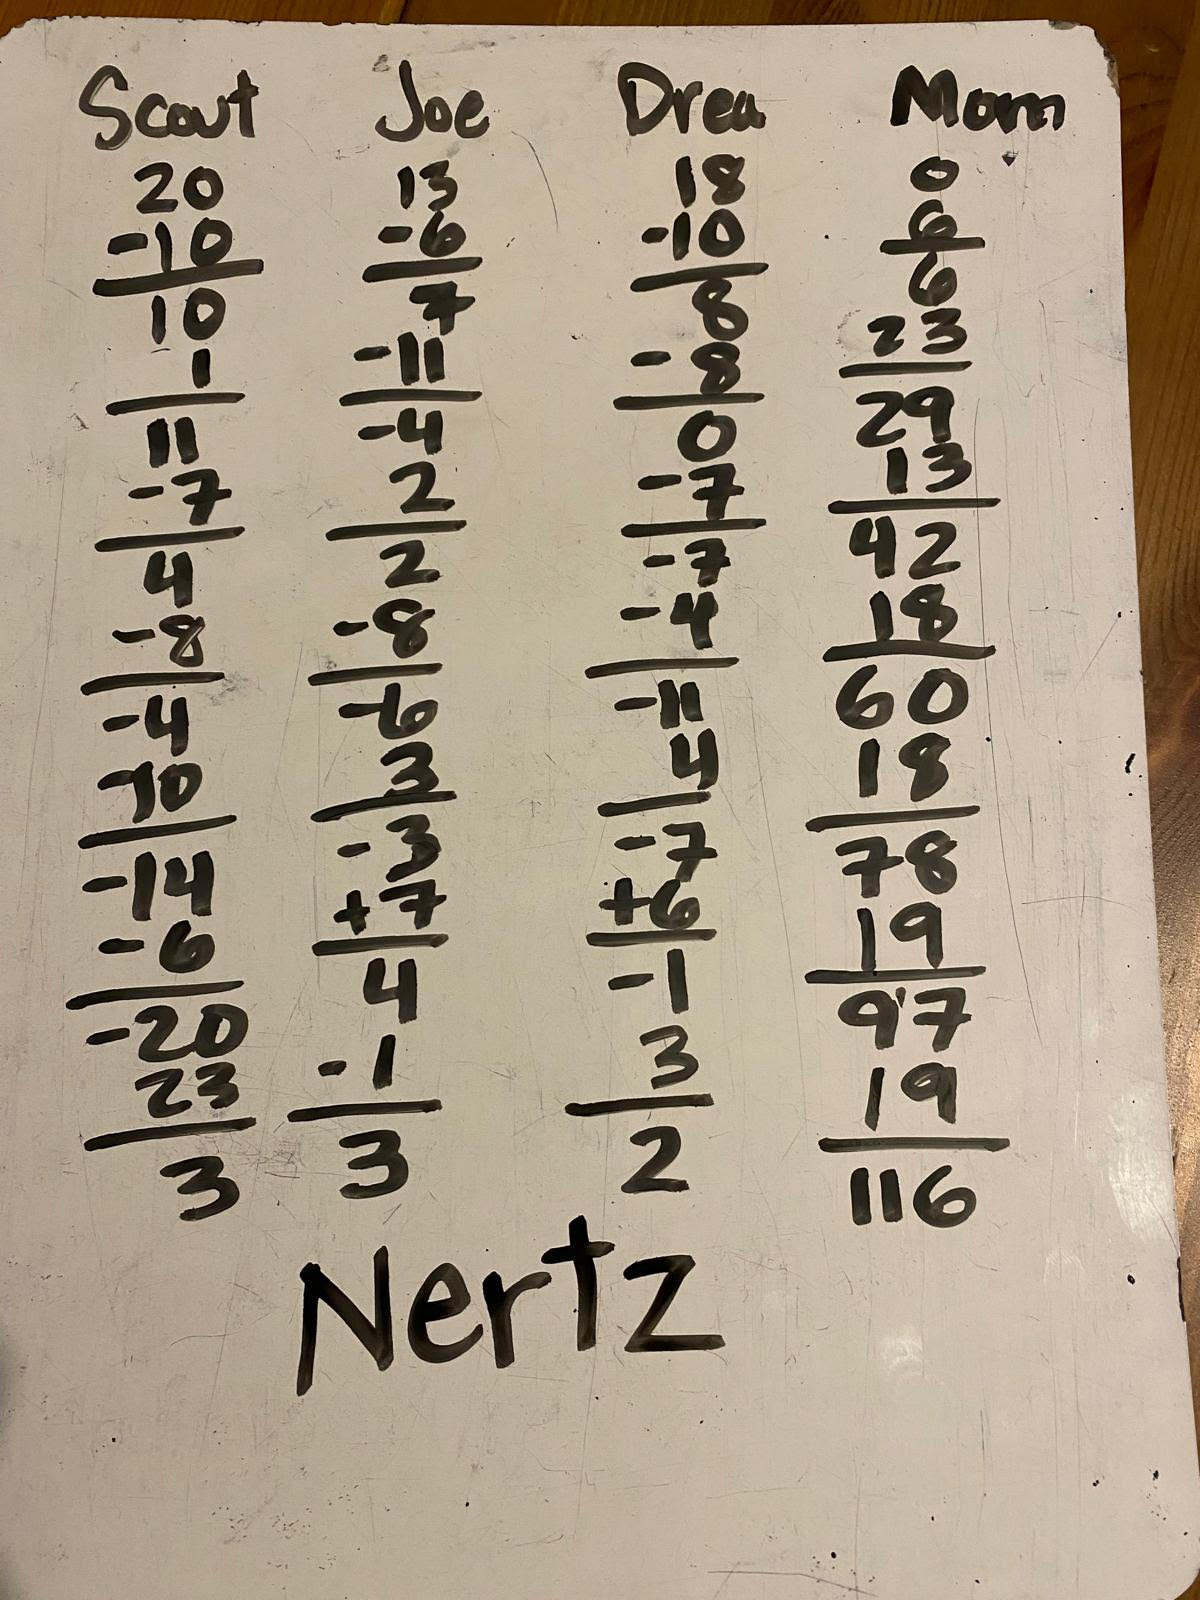 Scout Joe Drea Mom
20 13 18 0
-10 -6 -10 6
10 7 8 6
1 -11 -8 23
11 -4 0 29
-7 2 -7 13
4 2 -7 42
-8 -8 -4 18
-4 -6 -11 60
-10 3 4 18
-14 -3 -7 78
-6 +7 +6 19
-20 4 -1 97
23 -1 3 19
3 3 2 116
Nertz